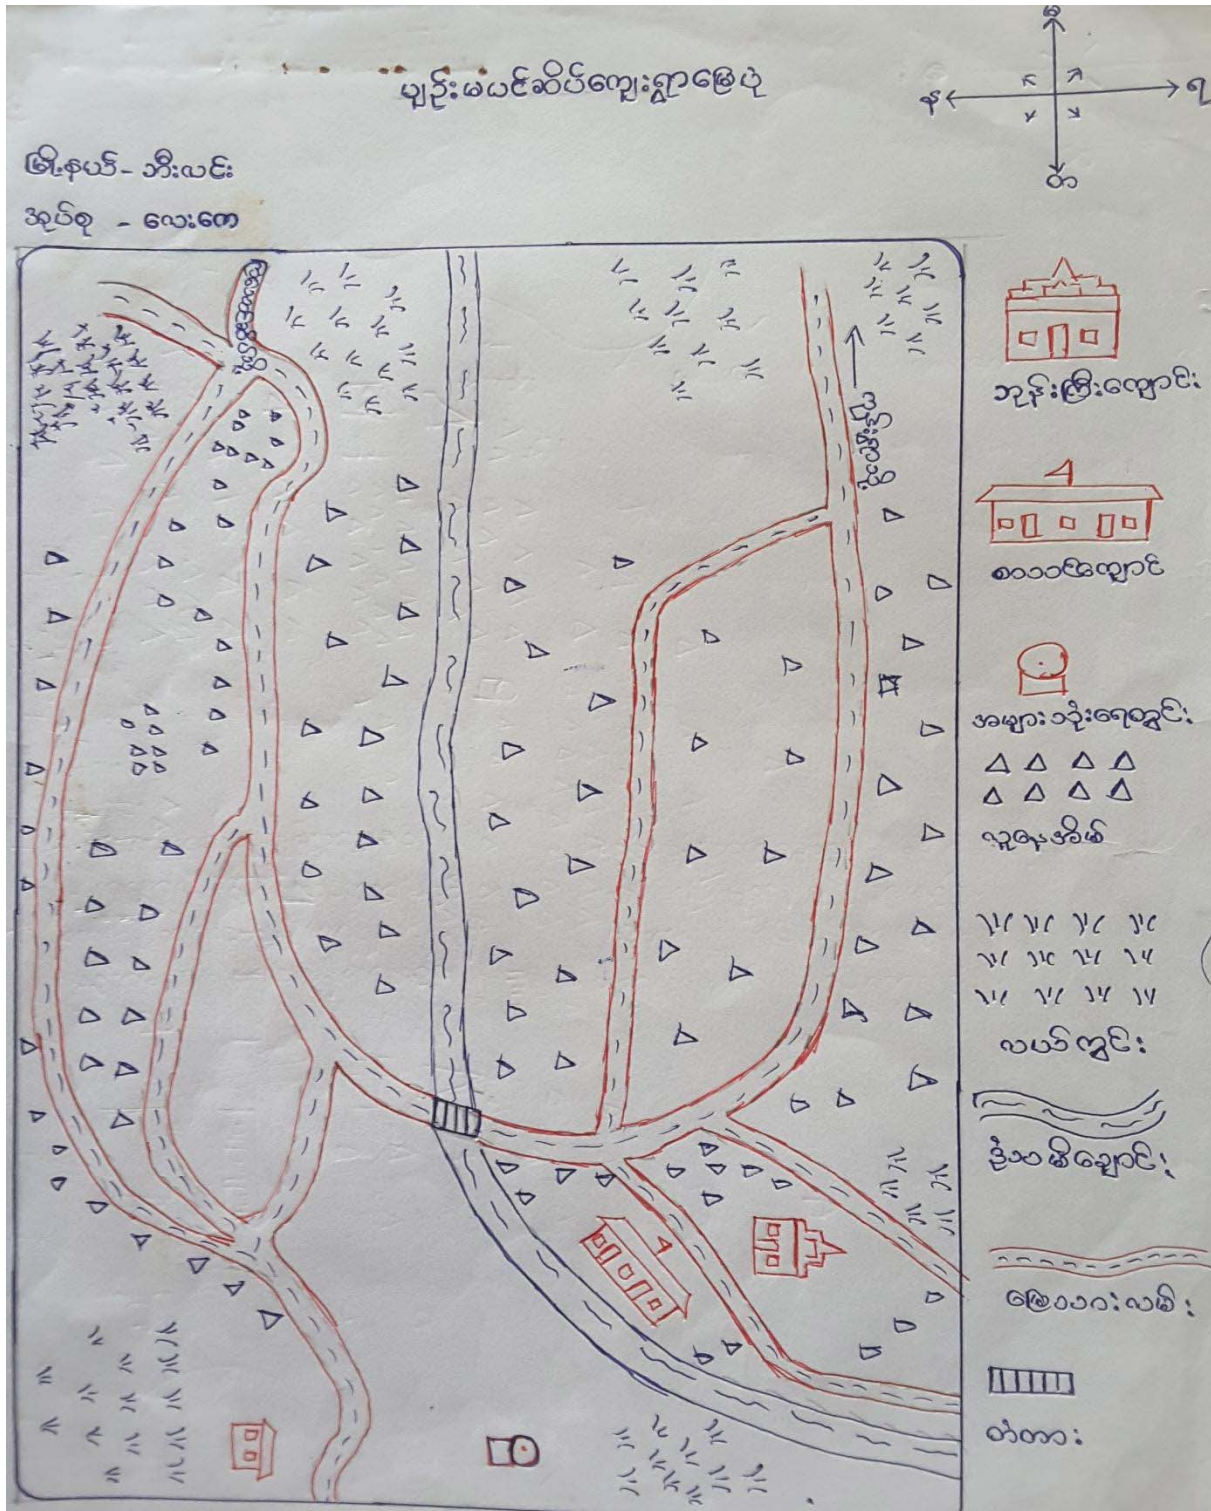 ပျဉ်းမပင်ဆိပ်ကျေးရွာမြေပုံ
မြို့နယ် - ဘီးလင်း
အုပ်စု - လေးကေ
န
ရ
တ
ဘုန်းကြီးကျောင်း
စာသင်ကျောင်
အများသုံးရေတွင်း
လူနေအိမ်
လယ်ကွင်း
ဒုံသမိချောင်း
မြေသားလမ်း
တံတား